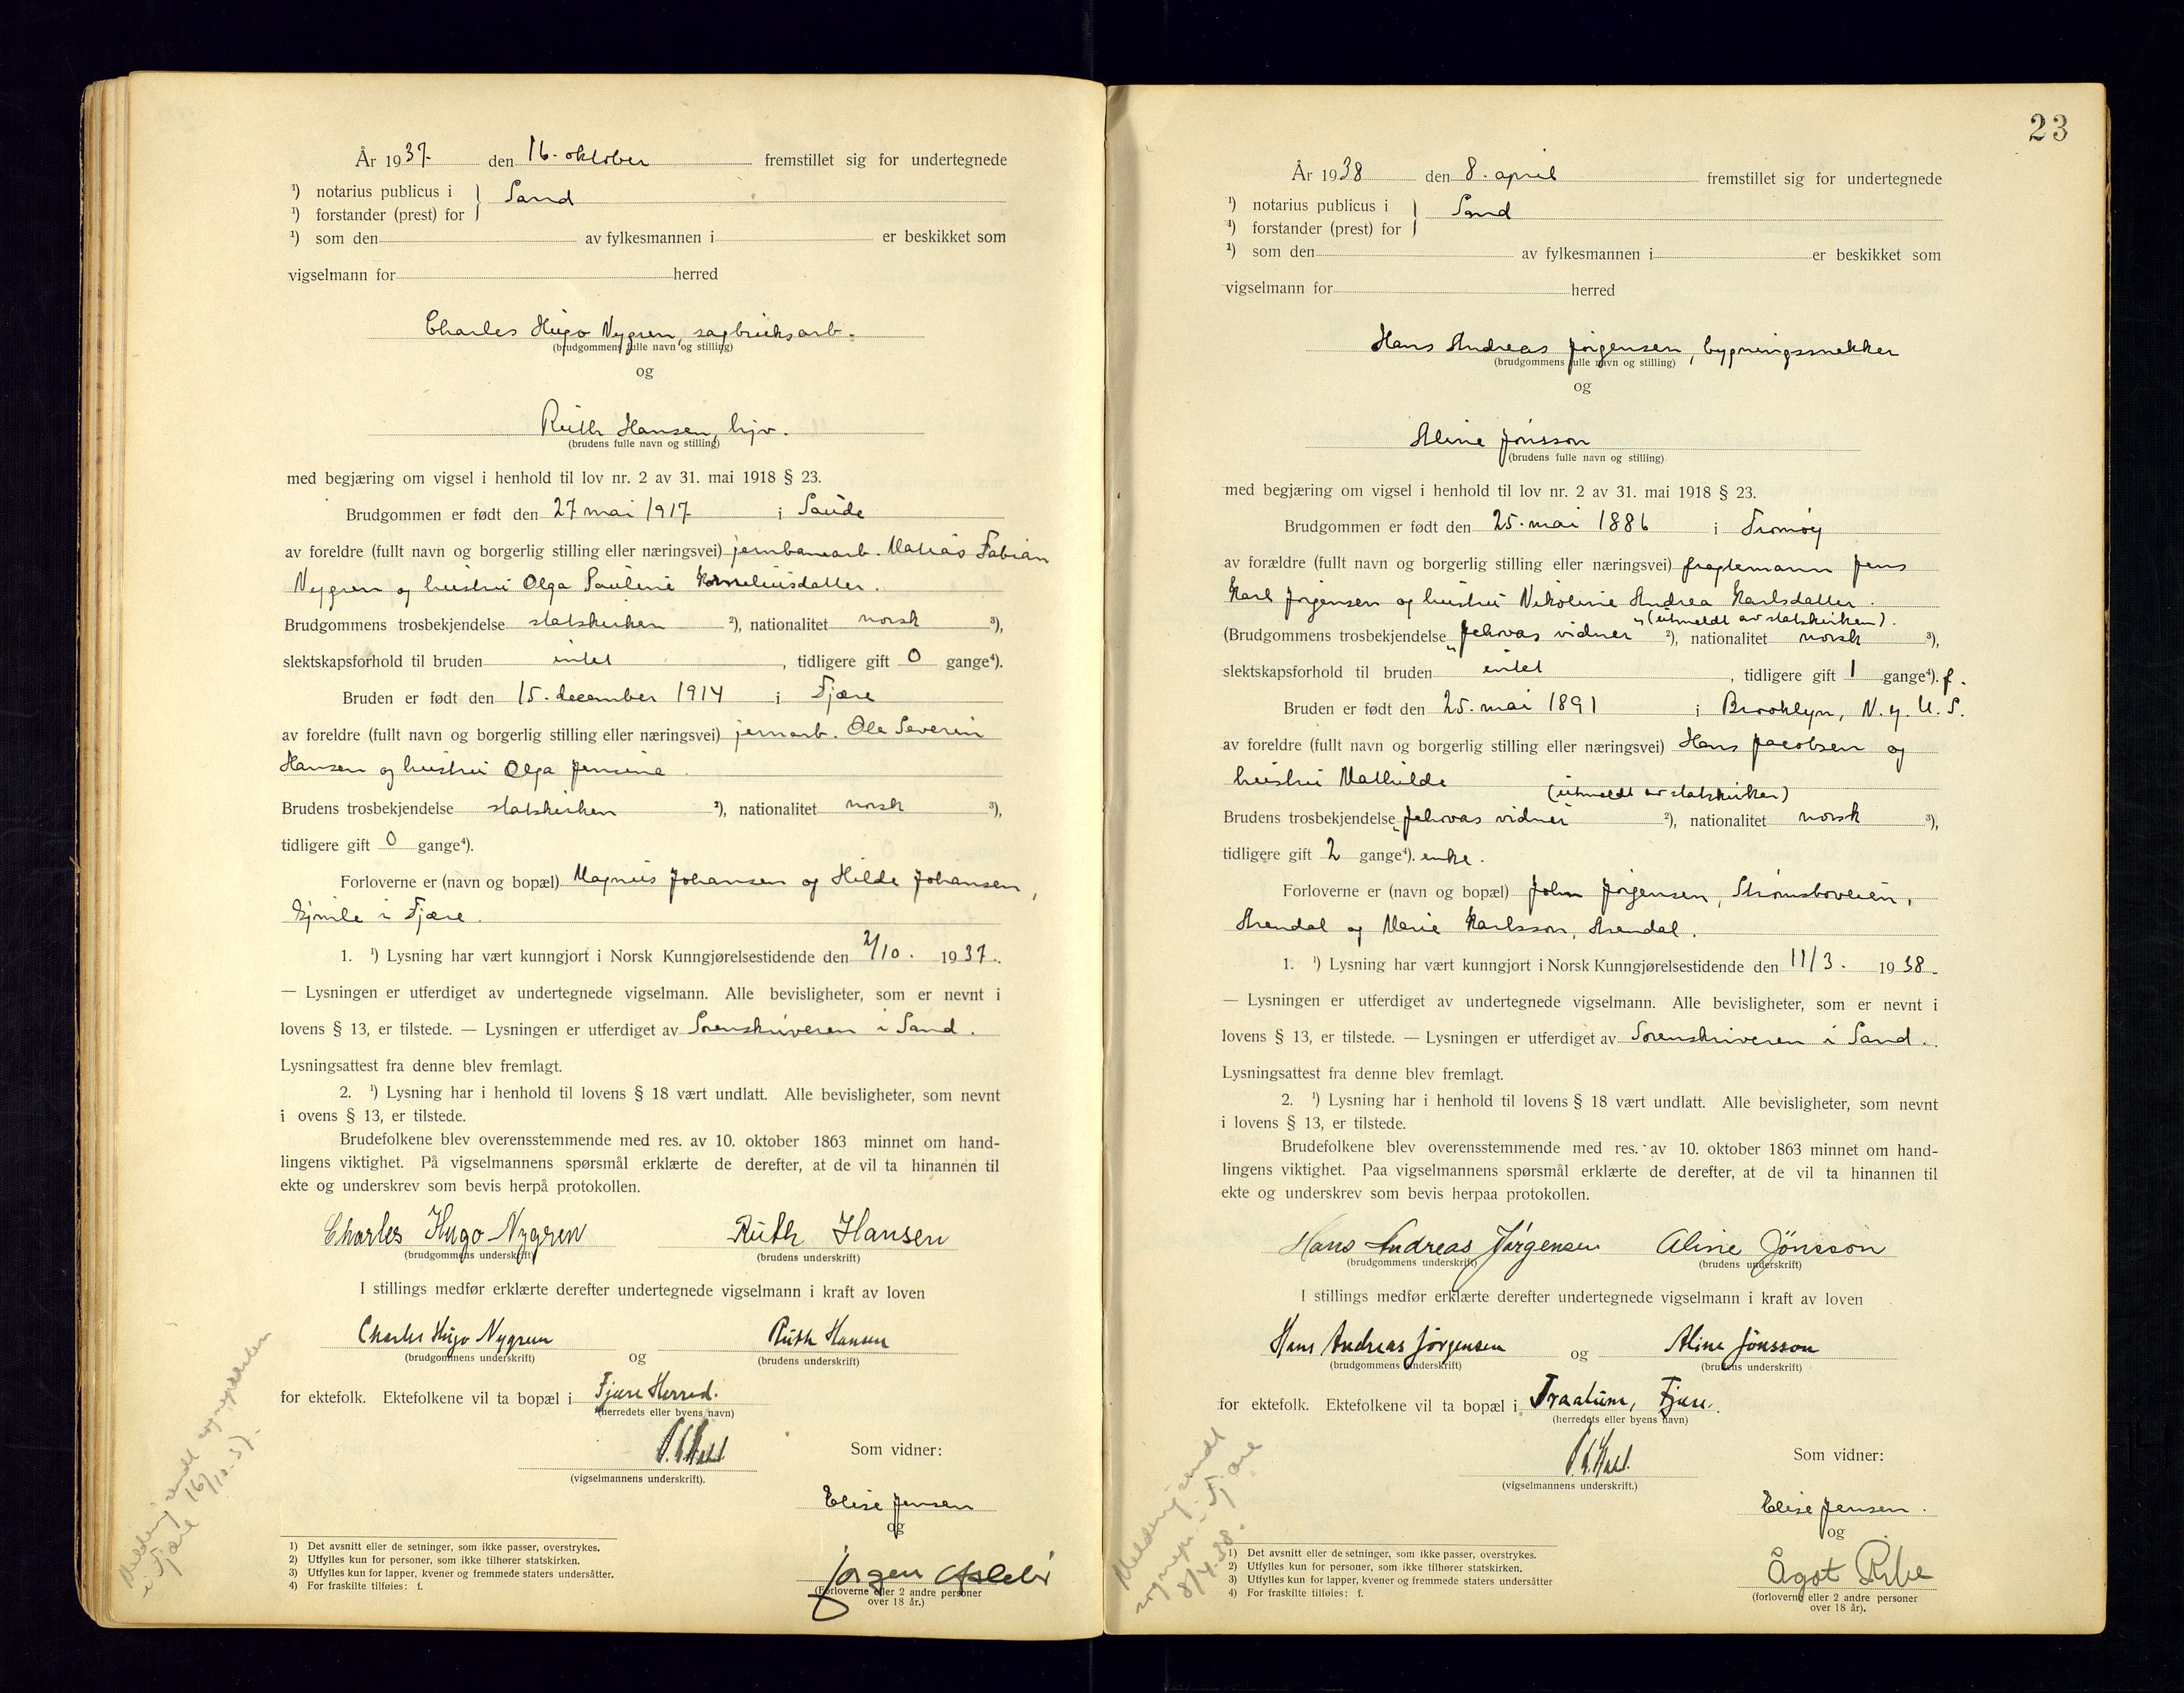 År 1937. den 16. oktober fremstillet sig for undertegnede
¹) notarius publicus i } Sand
¹) forstander (prest) for
¹) som den av fylkesmannen i er beskikket som
vigselmann for herred
Charles Hugo Nygren, sagbruksarb.
(brudgommens fulle navn og stilling)
og
Ruth Hansen, hjv.
(brudens fulle navn og stilling)
med begjæring om vigsel i henhold til lov nr. 2 av 31. mai 1918 § 23.
Brudgommen er født den 27 mai 1917 i Saude
av foreldre (fullt navn og borgerlig stilling eller næringsvei) jernbanearb. Matias Fabian
Nygren og hustru Olga Pauline Korneliusdatter.
Brudgommens trosbekjendelse statskirken ²), nationalitet norsk ³),
slektskapsforhold til bruden intet , tidligere gift 0 gange⁴).
Bruden er født den 15. december 1914 i Fjære
av foreldre (fullt navn og borgerlig stilling eller næringsvei) jernarb. Ole Severin
Hansen og hustru Olga Jensine.
Brudens trosbekjendelse statskirken ²), nationalitet norsk ³),
tidligere gift 0 gange⁴).
Forloverne er (navn og bopæl) Magnus Johansen og Hilde Johansen,
i Fjære.
1. ¹) Lysning har vært kunngjort i Norsk Kunngjørelsestidende den 2/10. 1937.
— Lysningen er utferdiget av undertegnede vigselmann. Alle bevisligheter, som er nevnt i
lovens § 13, er tilstede. — Lysningen er utferdiget av Sorenskriveren i Sand.
Lysningsattest fra denne blev fremlagt.
2. ¹) Lysning har i henhold til lovens § 18 vært undlatt. Alle bevisligheter, som nevnt
i ovens § 13, er tilstede.
Brudefolkene blev overensstemmende med res. av 10. oktober 1863 minnet om hand-
lingens viktighet. På vigselmannens spørsmål erklærte de derefter, at de vil ta hinannen til
ekte og underskrev som bevis herpå protokollen.
Charles Hugo Nygren Ruth Hansen
(brudgommens underskrift) (brudens underskrift)
I stillings medfør erklærte derefter undertegnede vigselmann i kraft av loven
Charles Hugo Nygren og Ruth Hansen
(brudgommens underskrift) (brudens underskrift)
for ektefolk. Ektefolkene vil ta bopæl i Fjære Herred.
(herredets eller byens navn)
(vigselmannens underskrift).
Som vidner:
Elise Jensen
og
Jørgen
(Forloverne eller 2 andre personer
over 18 år.)
Melding sendt sognepresten
i Fjære 16/10-37.
1) Det avsnitt eller de setninger, som ikke passer, overstrykes.
2) Utfylles kun for personer, som ikke tilhører statskirken.
3) Utfylles kun for lapper, kvener og fremmede staters undersåtter.
4) For fraskilte tilføies: f.
23
År 1938 den 8. april fremstillet sig for undertegnede
¹) notarius publicus i } Sand
¹) forstander (prest) for
¹) som den av fylkesmannen i er beskikket som
vigselmann for herred
Hans Andreas Jørgensen, bygningssnekker
(brudgommens fulle navn og stilling)
og
Aline Jönsson
(brudens fulle navn og stilling)
med begjæring om vigsel i henhold til lov nr. 2 av 31. mai 1918 § 23.
Brudgommen er født den 25. mai 1886 i Tromøy
av forældre (fullt navn og borgerlig stilling eller næringsvei) fragtemann Jens
Karl Jørgensen og hustru Nikoline Andrea Karlsdatter.
(utmeldt av statskirken).
(Brudgommens trosbekjendelse „Jehovas vidner" ²), nationalitet norsk ³),
slektskapsforhold til bruden intet , tidligere gift 1 gange⁴). f.
Bruden er født den 25. mai 1891 i Brooklyn, N.y. U.S.
av foreldre (fullt navn og borgerlig stilling eller næringsvei) Hans Jacobsen og
hustru Mathilde
(utmeldt av statskirken)
Brudens trosbekjendelse „Jehovas vidner ²), nationalitet norsk ³),
tidligere gift 2 gange⁴). enke.
Forloverne er (navn og bopæl) John Jørgensen, Strømsboveien,
Arendal og Marie Karlsson, Arendal.
1. ¹) Lysning har vært kunngjort i Norsk Kunngjørelsestidende den 11/3. 1938.
— Lysningen er utferdiget av undertegnede vigselmann. Alle bevisligheter, som er nevnt i
lovens § 13, er tilstede. — Lysningen er utferdiget av Sorenskriveren i Sand.
Lysningsattest fra denne blev fremlagt.
2. ¹) Lysning har i henhold til lovens § 18 vært undlatt. Alle bevisligheter, som nevnt
i lovens § 13, er tilstede.
Brudefolkene blev overensstemmende med res. av 10. oktober 1863 minnet om hand-
lingens viktighet. Paa vigselmannens spørsmål erklærte de derefter, at de vil ta hinannen til
ekte og underskrev som bevis herpaa protokollen.
Hans Andreas Jørgensen Aline Jönsson
(brudgommens underskrift) (brudens underskrift)
I stillings medfør erklærte derefter undertegnede vigselmann i kraft av loven
Hans Andreas Jørgensen og Aline Jönsson
(brudgommens underskrift) (brudens underskrift)
for ektefolk. Ektefolkene vil ta bopæl i Traatum, Fjære.
(herredets eller byens navn)
(vigselmannens underskrift.)
Som vidner:
Elise Jensen.
og
Ågot Ribe
(forloverne eller 2 andre personer
over 18 år).
Melding sendt
sognepr. i Fjære
8/4-38.
1) Det avsnitt eller de setninger, som ikke passer, overstrykes.
2) Utfylles kun for personer, som ikke tilhører statskirken.
3) Utfylles kun for lapper, kvener og fremmede staters undersåtter
4) For fraskilte tilføies: f.